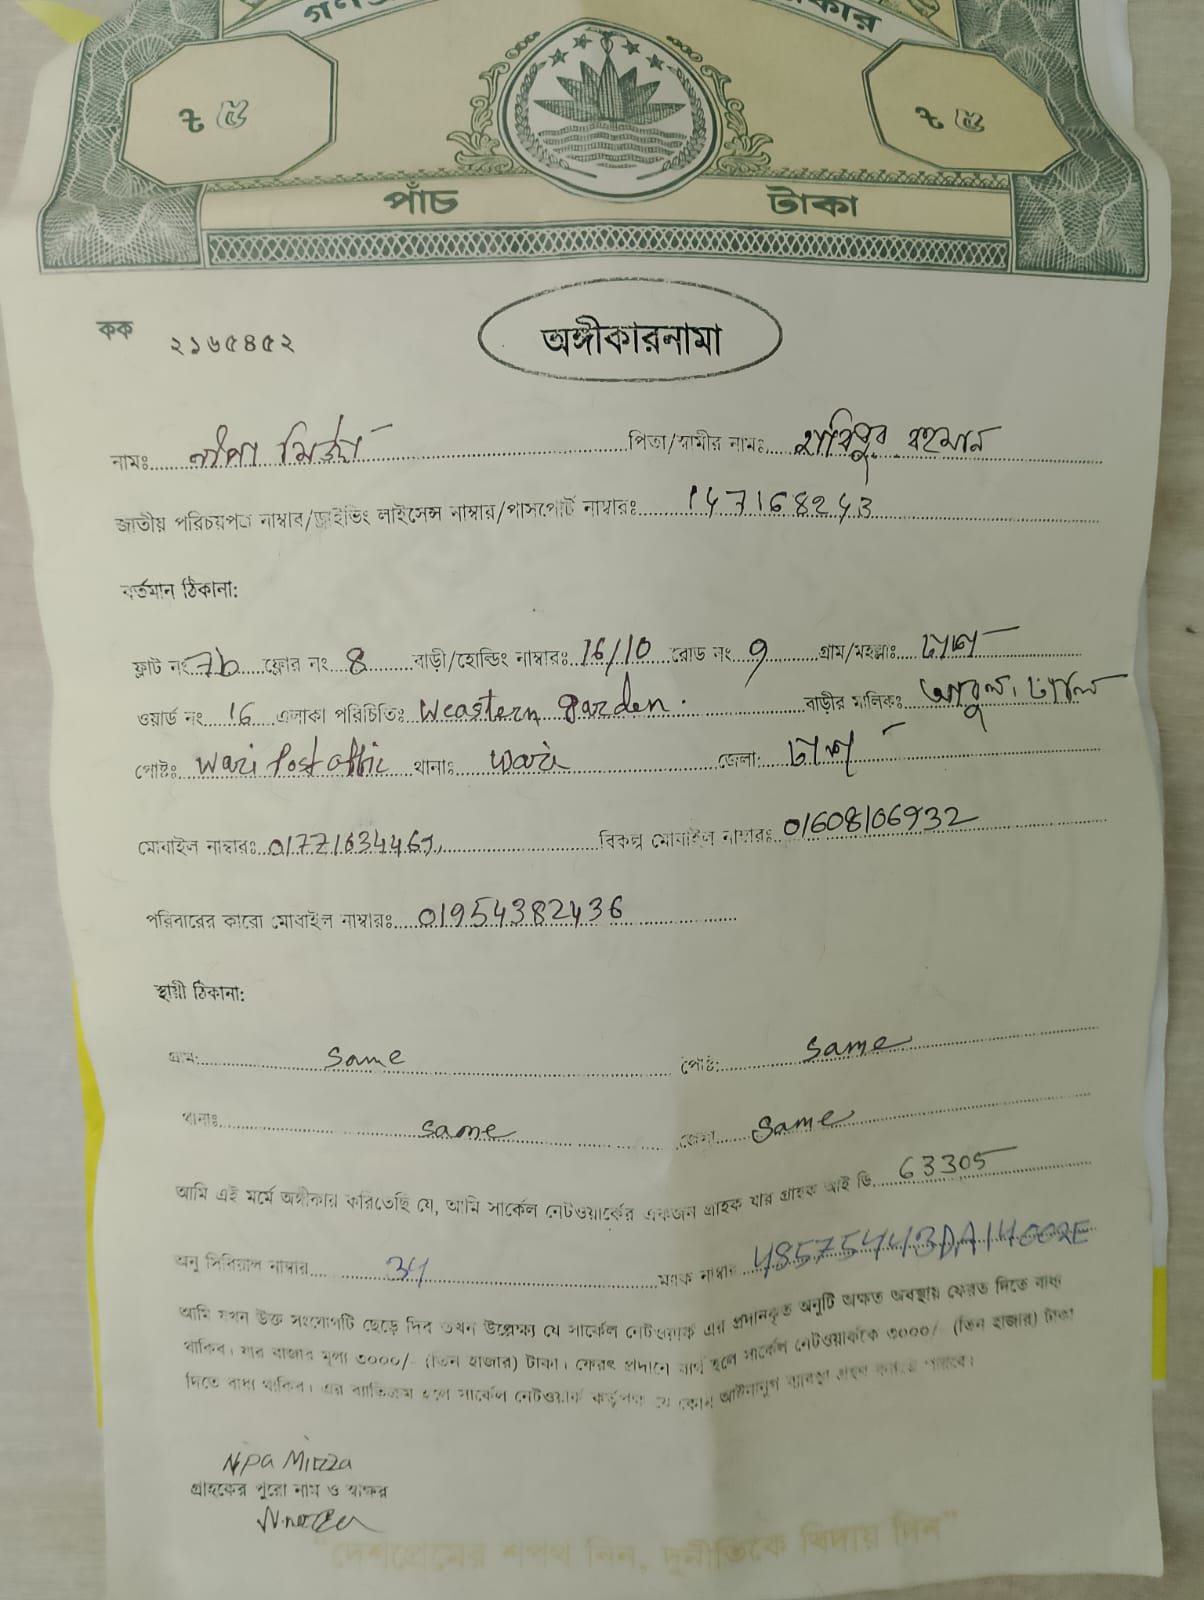 ৳ ৫ ৳ ৫
পাঁচ টাকা
কক ২১৬৫৪৫২
অঙ্গীকারনামা
নামঃ নীপা মির্জা পিতা/স্বামীর নামঃ হাবিবুর রহমান
জাতীয় পরিচয়পত্র নাম্বার/ড্রাইভিং লাইসেন্স নাম্বার/পাসপোর্ট নাম্বারঃ 147168243
বর্তমান ঠিকানা:
ফ্লাট নং 7b ফ্লোর নং 8 বাড়ী/হোল্ডিং নাম্বারঃ 16/10 রোড নং 9 গ্রাম/মহল্লাঃ ঢাকা
ওয়ার্ড নং 16 এলাকা পরিচিতিঃ Weastern garden. বাড়ীর মালিকঃ আবুল
পোষ্টঃ Wari Post offic থানাঃ Wari জেলা: ঢাকা
মোবাইল নাম্বারঃ বিকল্প মোবাইল নাম্বারঃ 01608106932
পরিবারের কারো মোবাইল নাম্বারঃ 01954382436
স্থায়ী ঠিকানা:
গ্রাম: Same পোষ্ট: Same
থানাঃ Same জেলা Same
আমি এই মর্মে অঙ্গীকার করিতেছি যে, আমি সার্কেল নেটওয়ার্কের একজন গ্রাহক যার গ্রাহক আই ডি 63305
অনু সিরিয়াল নাম্বার 34 ম্যাক নাম্বার 48575443DA14002E
আমি যখন উক্ত সংযোগটি ছেড়ে দিব তখন উল্লেক্ষ্য যে সার্কেল নেটওয়ার্ক এর প্রদানকৃত অনুটি অক্ষত অবস্থায় ফেরত দিতে বাধ্য
থাকিব। যার বাজার মূল্য ৩০০০/- (তিন হাজার) টাকা। ফেরৎ প্রদানে ব্যর্থ হলে সার্কেল নেটওয়ার্ককে ৩০০০/- (তিন হাজার) টাকা
দিতে বাধ্য থাকিব। এর ব্যতিক্রম হলে সার্কেল নেটওয়ার্ক কর্তৃপক্ষ যে কোন আইনানুগ ব্যবস্থা গ্রহণ করতে পারবে।
Nipa Mirza
গ্রাহকের পুরো নাম ও স্বাক্ষর
"দেশপ্রেমের শপথ নিন, দুর্নীতিকে বিদায় দিন"